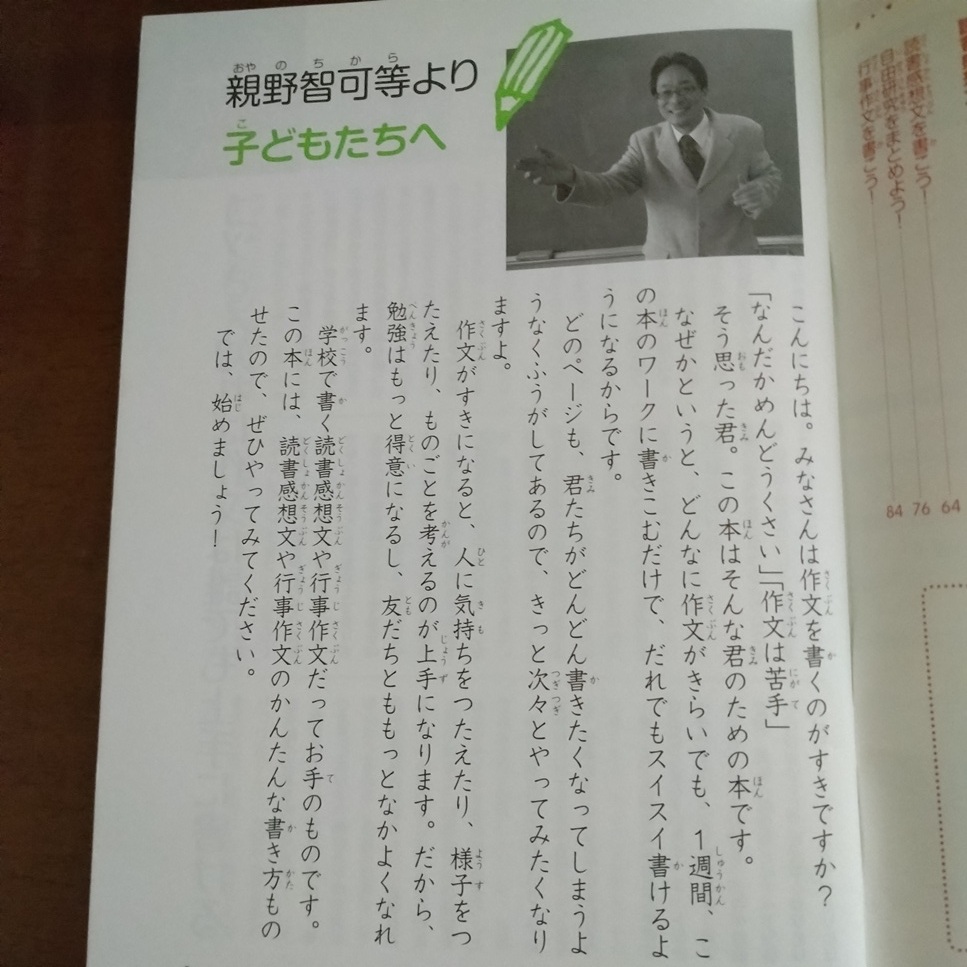 親野智可等より
子どもたちへ
こんにちは。みなさんは作文を書くのがすきですか？
「なんだかめんどうくさい」「作文は苦手」
そう思った君。この本はそんな君のための本です。
なぜかというと、どんなに作文がきらいでも、１週間、こ
の本のワークに書きこむだけで、だれでもスイスイ書けるよ
うになるからです。
どのページも、君たちがどんどん書きたくなってしまうよ
うなくふうがしてあるので、きっと次々とやってみたくなり
ますよ。
作文がすきになると、人に気持ちをつたえたり、様子をつ
たえたり、ものごとを考えるのが上手になります。だから、
勉強はもっと得意になるし、友だちとももっとなかよくなれ
ます。
学校で書く読書感想文や行事作文だってお手のものです。
この本には、読書感想文や行事作文のかんたんな書き方もの
せたので、ぜひやってみてください。
では、始めましょう！
読書感想文を書こう！ 64
自由研究をまとめよう！ 76
行事作文を書こう！ 84